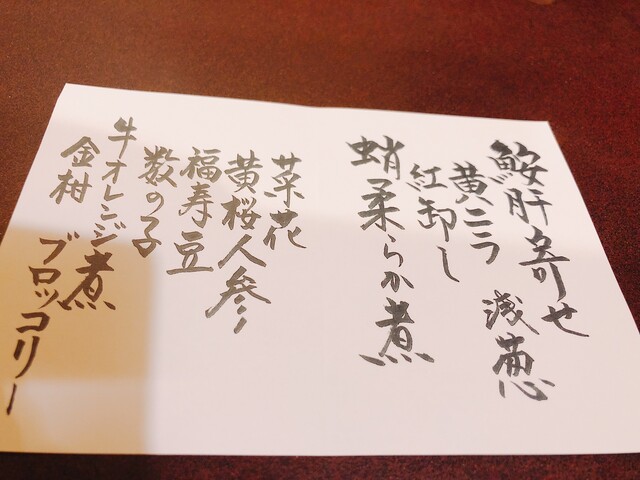 鮟肝寄せ 浅葱
黄ニラ
紅卸し
蛸柔らか煮
菜花
黄桜人参
福寿豆
数の子
牛オレンジ煮
金柑 ブロッコリー